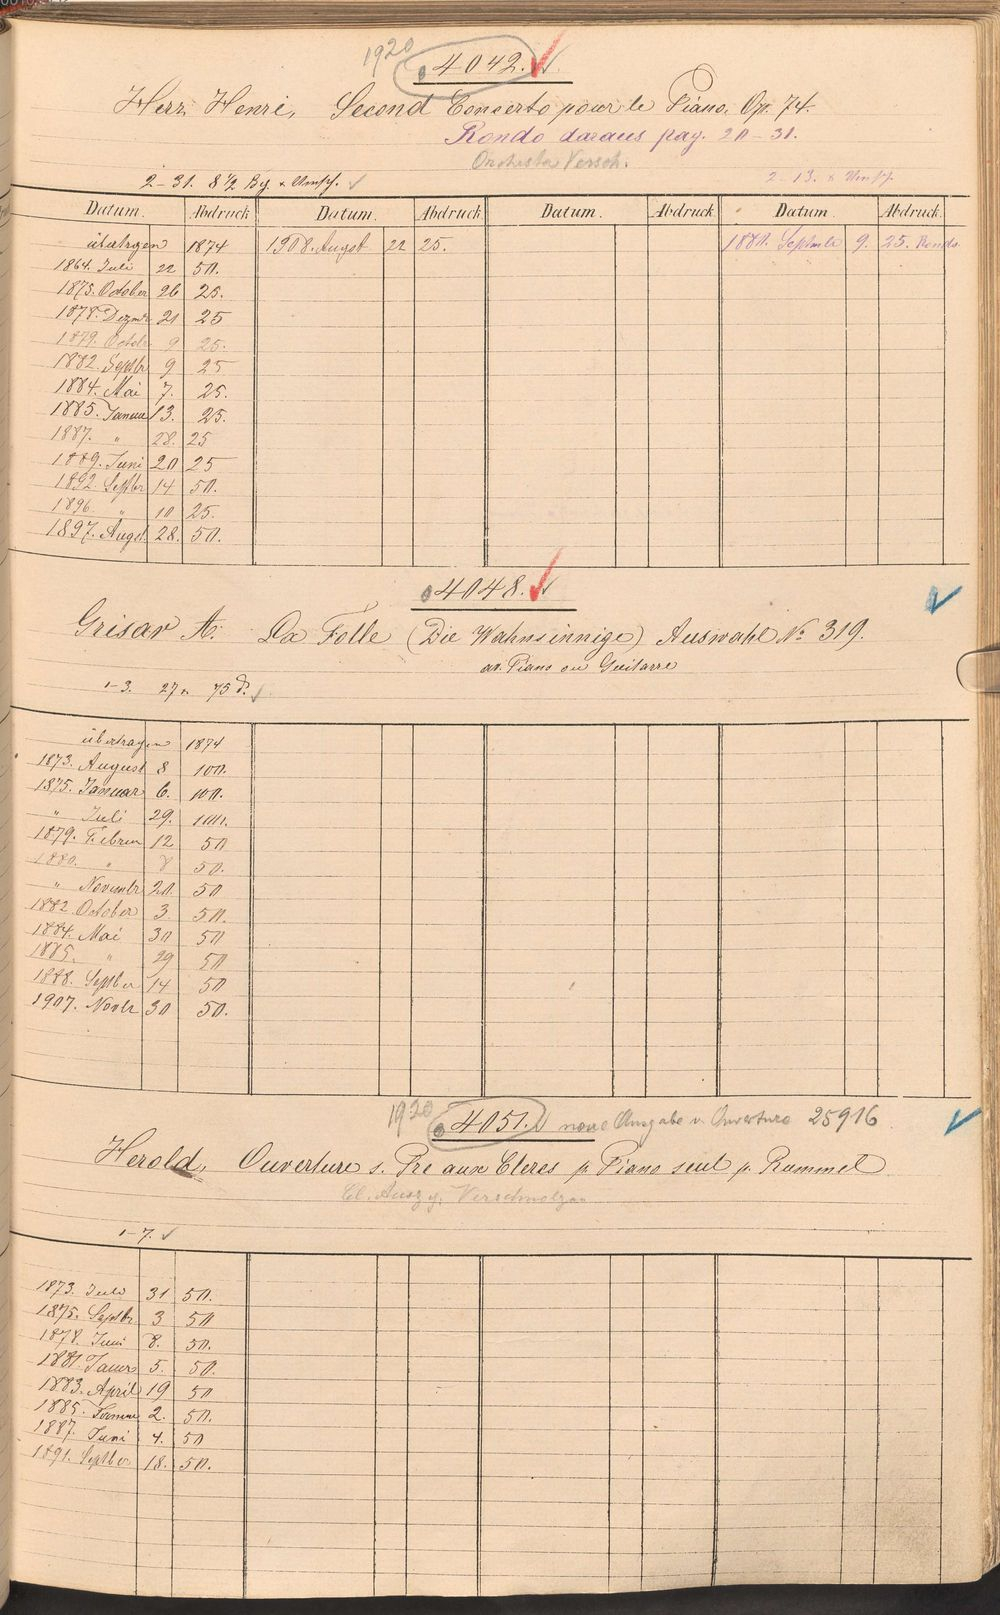 1920 4042.
Herz Henri, Second Concerto pour le Piano. Op. 74.
Rondo daraus pag. 20-31.
Orchester Versch.
2-31. 8 1/2 Bg. x Umsch.
2-13. x Umsch.
Datum. Abdruck Datum. Abdruck Datum. Abdruck. Datum. Abdruck.
übertragen 1874 1908. Augst 22 25. 1880. Septmb 9. 25. Rondo
1864. Juli 22 50.
1875. October 26 25.
1878. Dezmbr 21 25
1879. Octobr 9 25.
1882. Septbr 9 25
1884. Mai 7. 25.
1885. Januar 13. 25.
1887. " 28. 25
1889. Juni 20 25
1892. Septbr 14 50.
1896. " 10 25.
1897. Augst. 28. 50.
4048.
Grisar A. La Folle (Die Wahnsinnige) Auswahl No 319.
av. Piano ou Guitarre
1-3. 27x 75
übertragen 1874
1873. August 8 100.
1875. Januar 6. 100.
" Juli 29. 100.
1879. Februar 12 50
1880. " 8 50.
" Novembr 20. 50
1882. October 3. 50.
1884. Mai 30 50
1885. " 29 50
1888. Septber 14 50
1907. Novbr 30 50.
1920 4051. neue Ausgabe v. Ouverture 25916
Herold, Ouverture s. Pre aux Clercs p. Piano seul p. Rummel
Cl. Ausz g. Verschmolzen
1-7.
1873. Juli 31 50.
1875. Septbr 3 50
1878. Juni 8. 50.
1881. Januar 5. 50.
1883. April 19 50
1885. Januar 2. 50.
1887. Juni 4. 50
1891. Septber 18. 50.